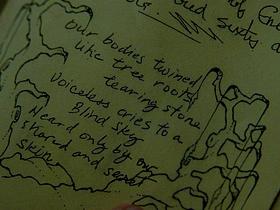 our bodies twined
like tree roots
tearing stone
Voiceless cries to a
Blind sky
Heard only by our
shared and secret
skin